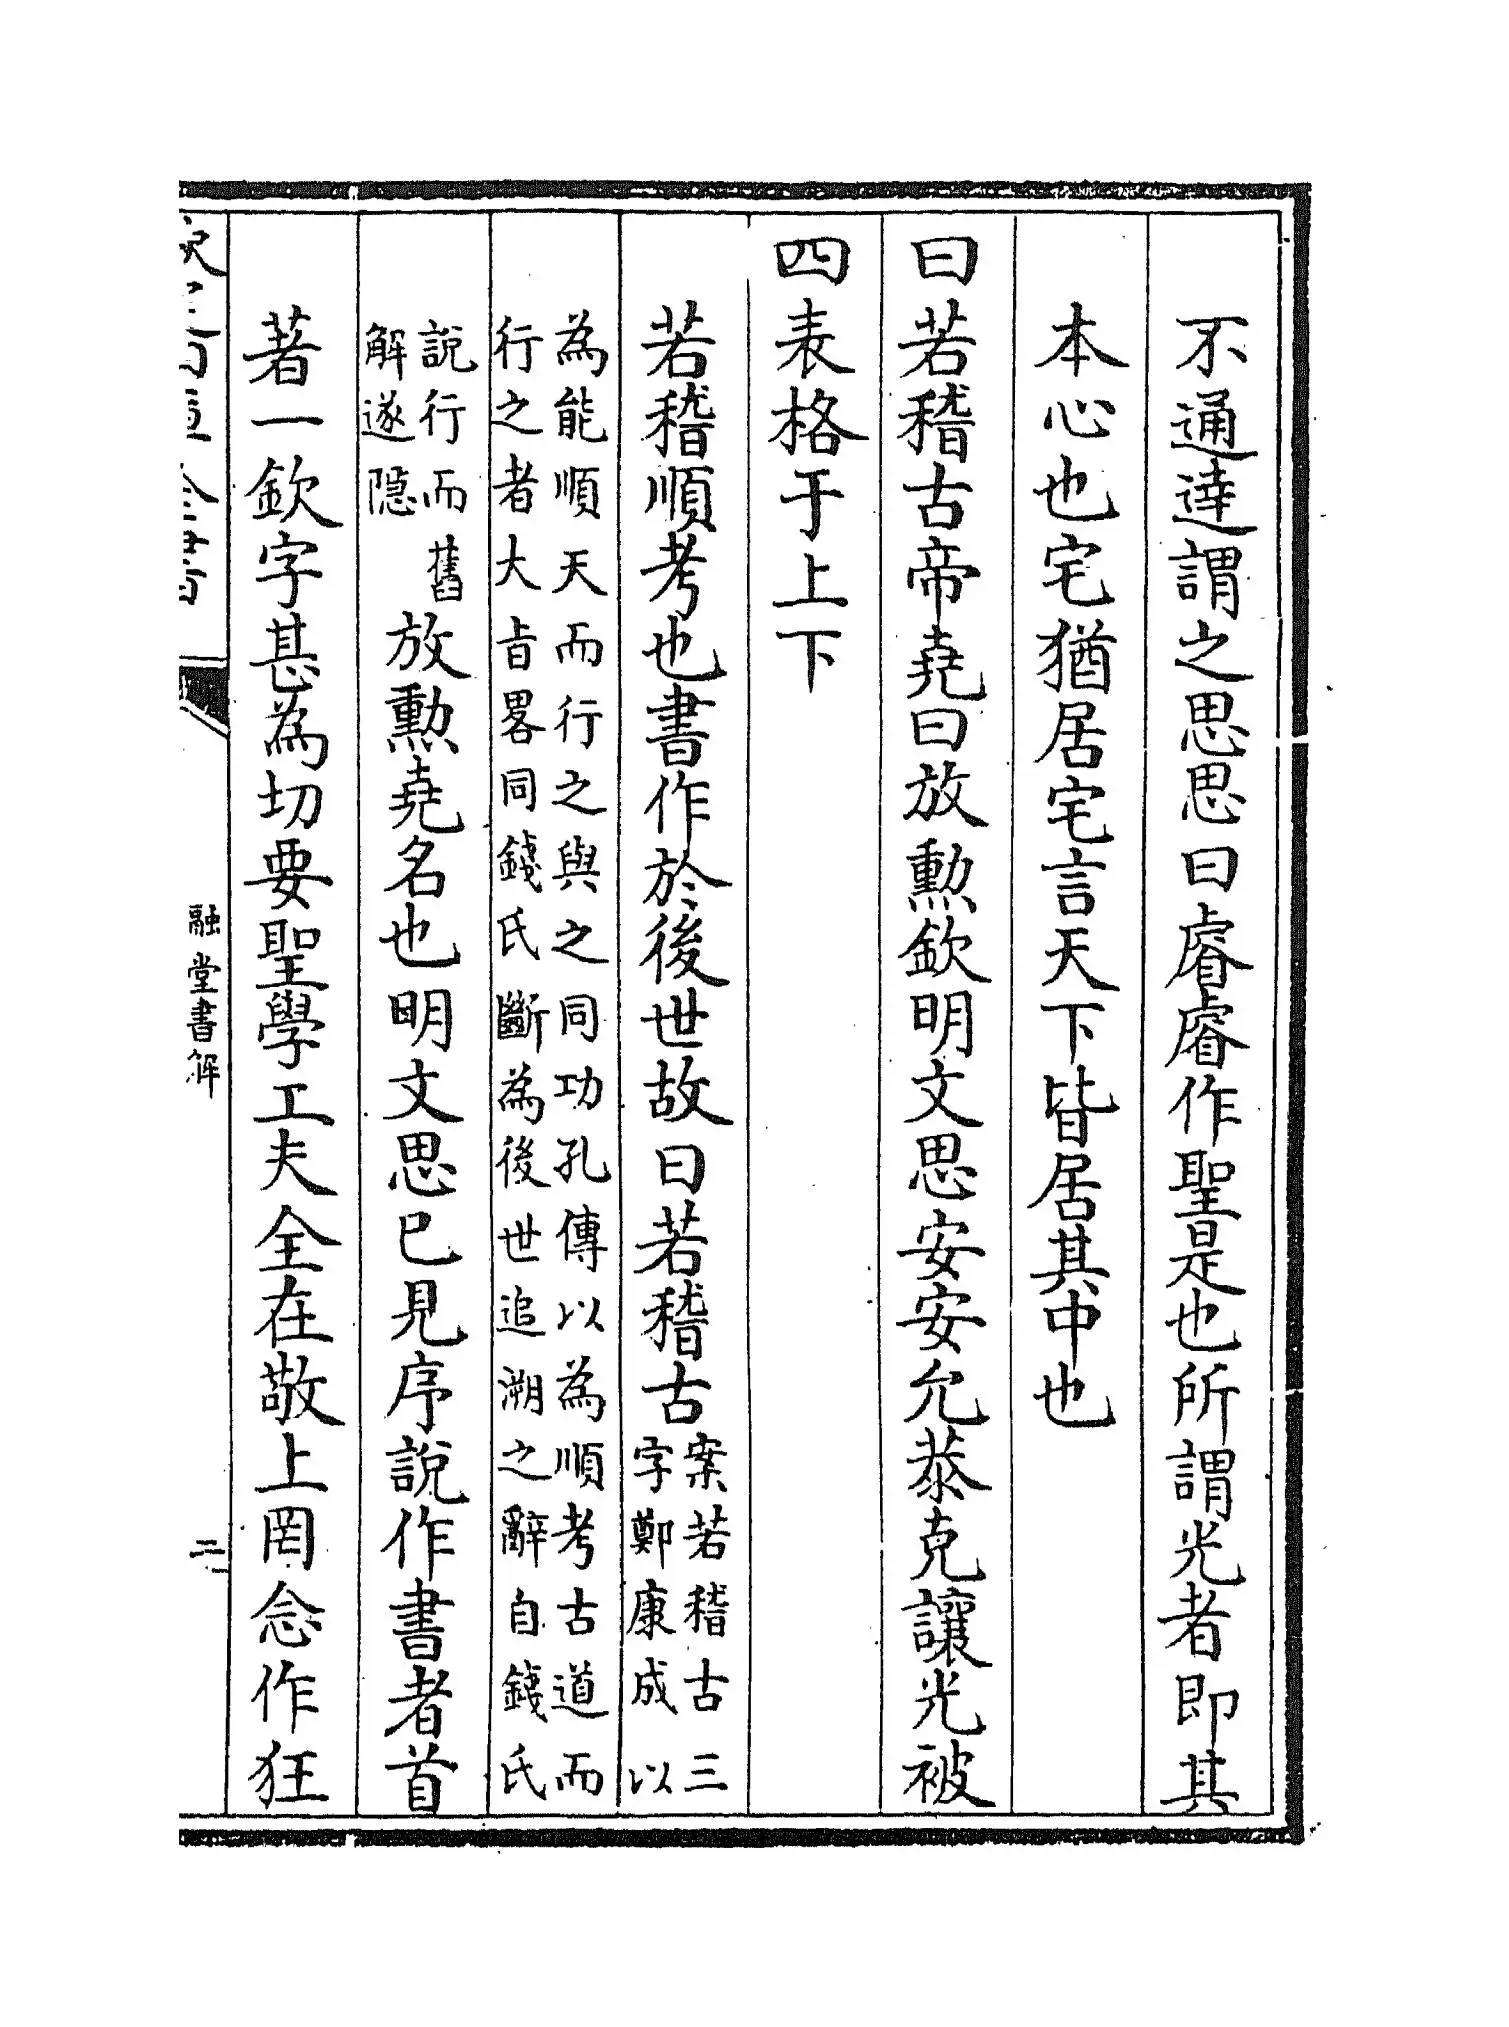 不通達謂之思思曰睿睿作聖是也所謂光者即其
本心也宅猶居宅言天下皆居其中也
曰若稽古帝堯曰放勲欽明文思安安允恭克讓光被
四表格于上下
若稽順考也書作於後世故曰若稽古
案若稽古三
字鄭康成以
為能順天而行之與之同功孔傳以為順考古道而
行之者大㫖畧同錢氏斷為後世追溯之辭自錢氏
說行而舊
解遂隱
放勲堯名也明文思已見序說作書者首
著一欽字甚為切要聖學工夫全在敬上罔念作狂
融堂書解
二